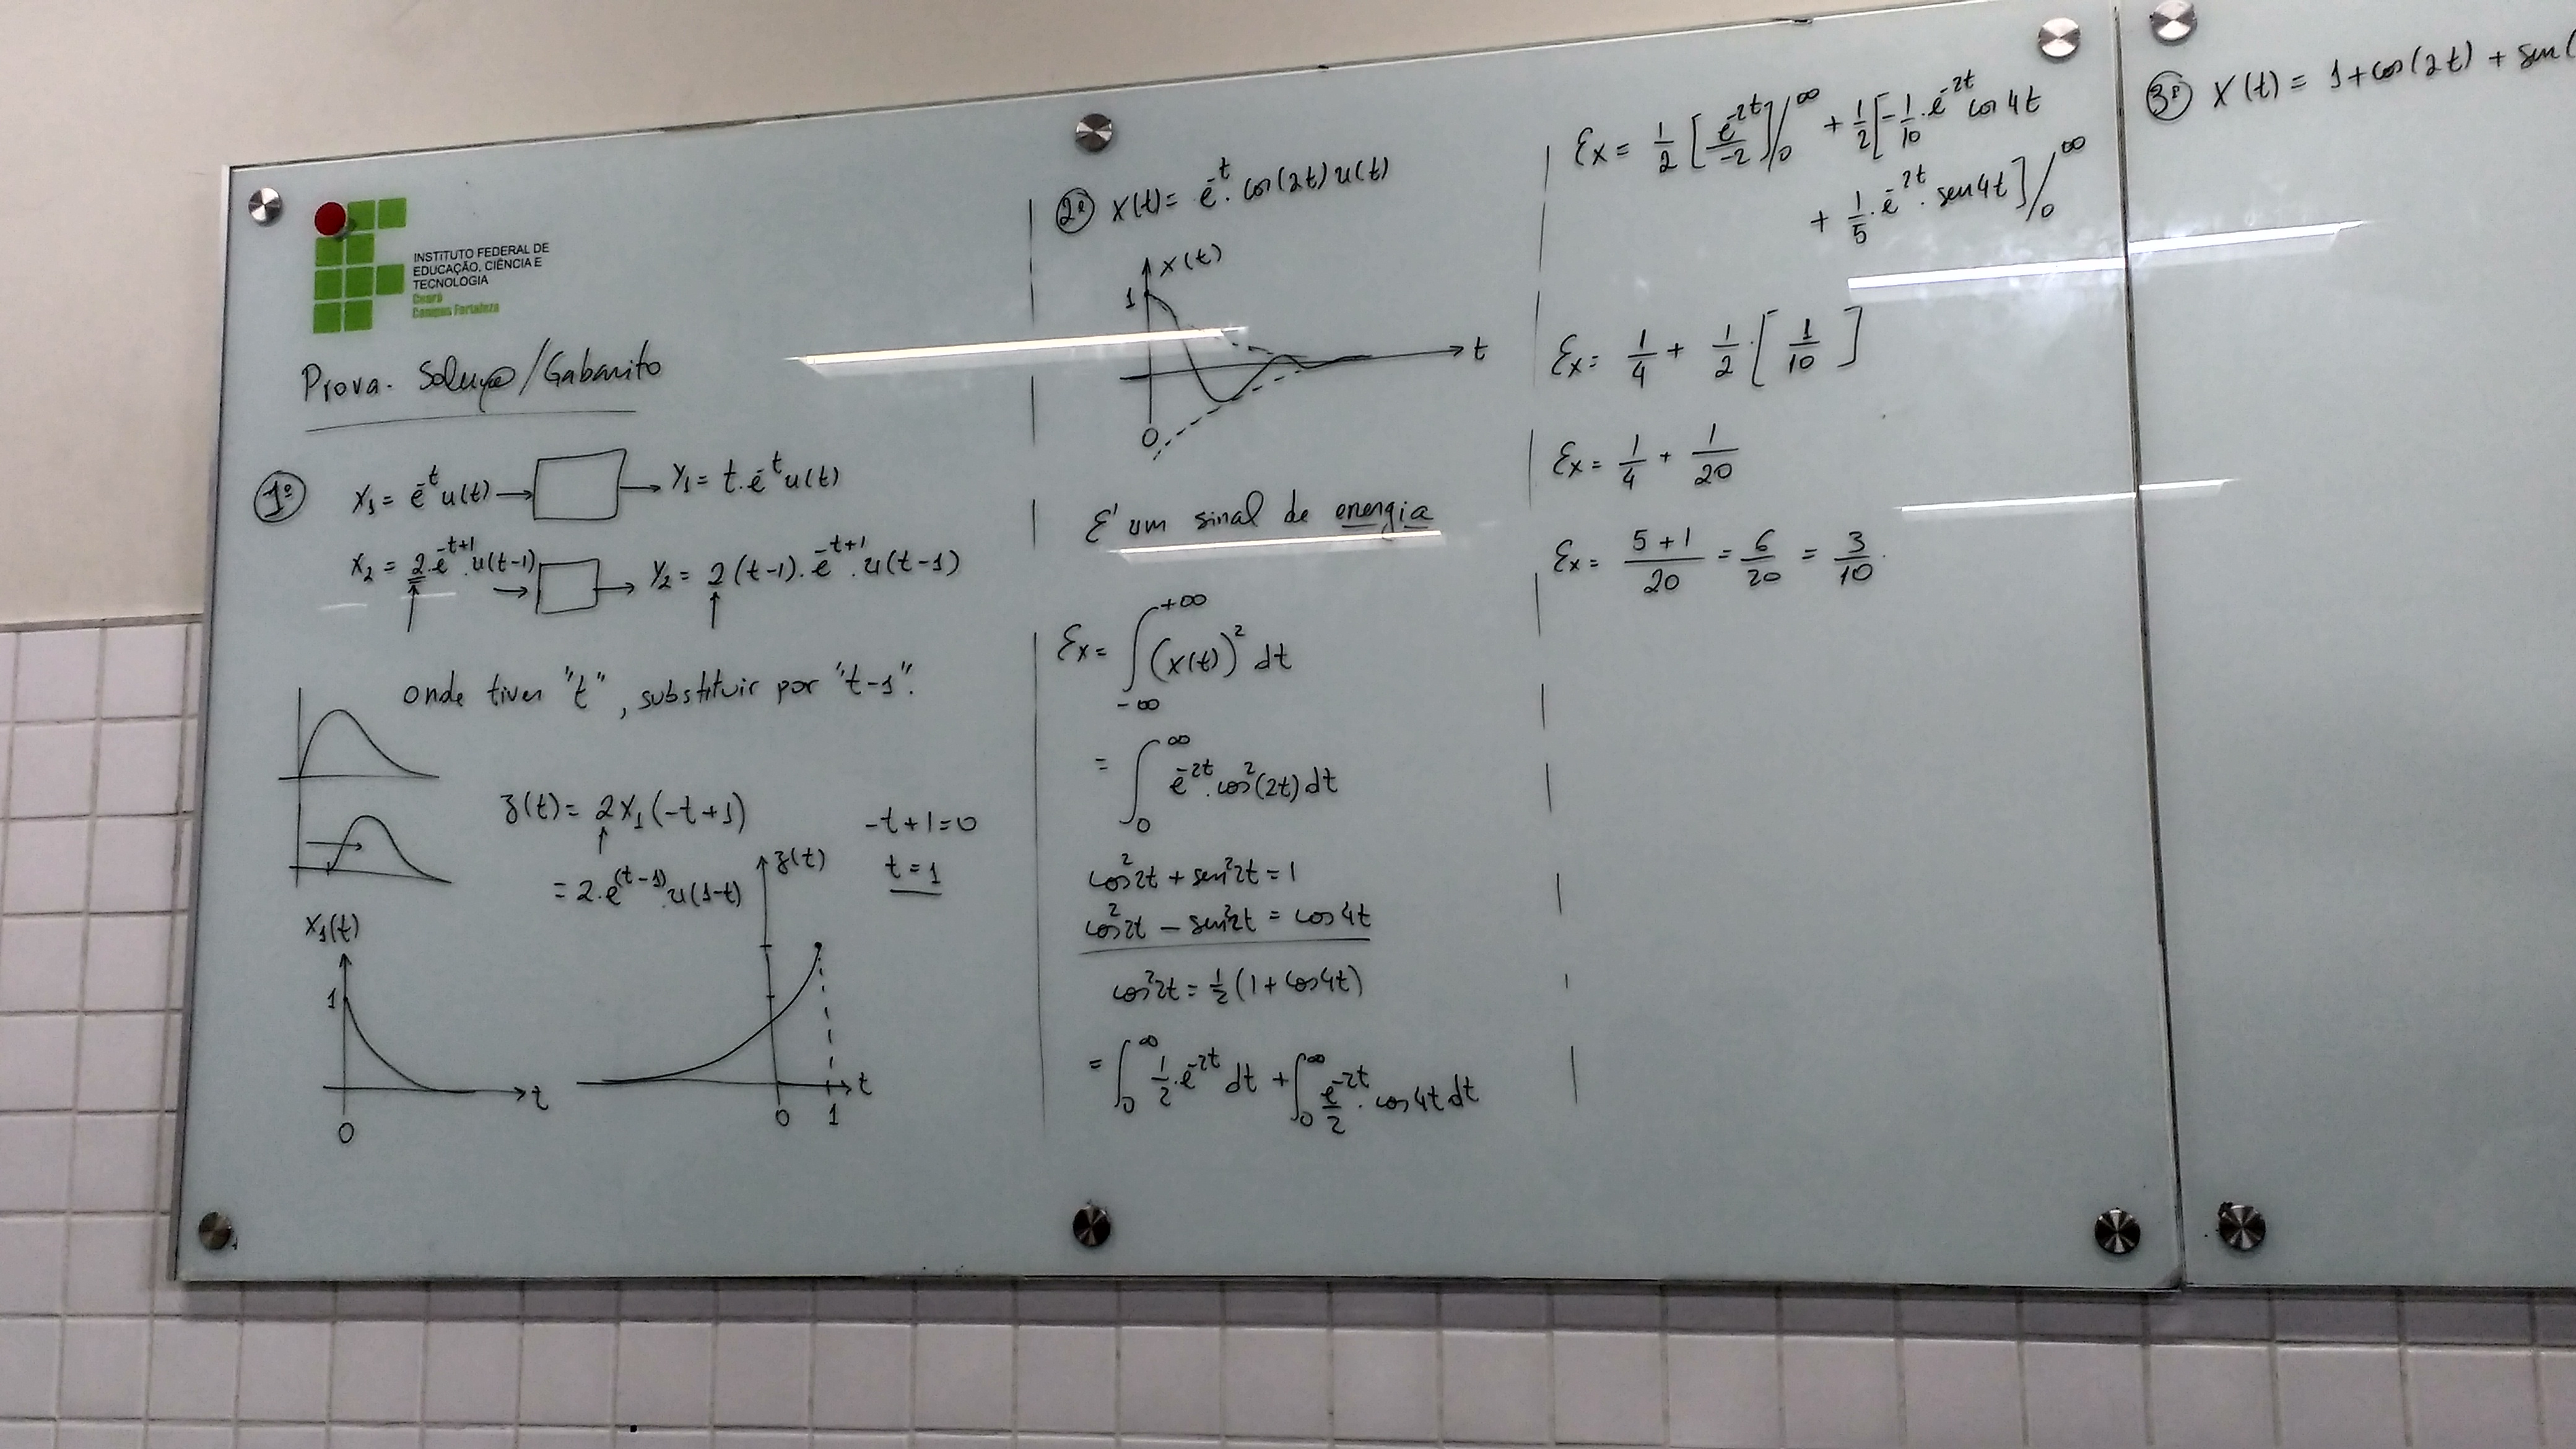 INSTITUTO FEDERAL DE
EDUCAÇÃO, CIÊNCIA E
TECNOLOGIA
Ceará
Campus Fortaleza
Prova. Solução/Gabarito
1ª x₁ = e^-t u(t) → y₁ = t.e^-t u(t)
x₂ = 2.e^-t+1.u(t-1) → y₂ = 2(t-1).e^-t+1.u(t-1)
onde tiver "t", substituir por "t-1".
z(t) = 2x₁(-t+1)
-t+1=0
= 2.e^(t-1).u(1-t)
t = 1
z(t)
x₁(t)
1
t
0
t
0 1
2ª x(t) = e^-t.cos(2t)u(t)
x(t)
1
t
0
É um sinal de energia
Ex = ∫_-∞^+∞ (x(t))² dt
= ∫_0^∞ e^-2t.cos²(2t)dt
cos²2t + sen²2t = 1
cos²2t - sen²2t = cos4t
cos²2t = 1/2(1+cos4t)
= ∫_0^∞ 1/2.e^-2t dt + ∫_0^∞ e^-2t/2.cos4t dt
Ex = 1/2 [e^-2t/-2]/_0^∞ + 1/2[-1/10.e^-2t cos4t
+ 1/5.e^-2t.sen4t]/_0^∞
Ex = 1/4 + 1/2.[1/10]
Ex = 1/4 + 1/20
Ex = 5+1/20 = 6/20 = 3/10.
3ª x(t) = 1+cos(2t) + sen(